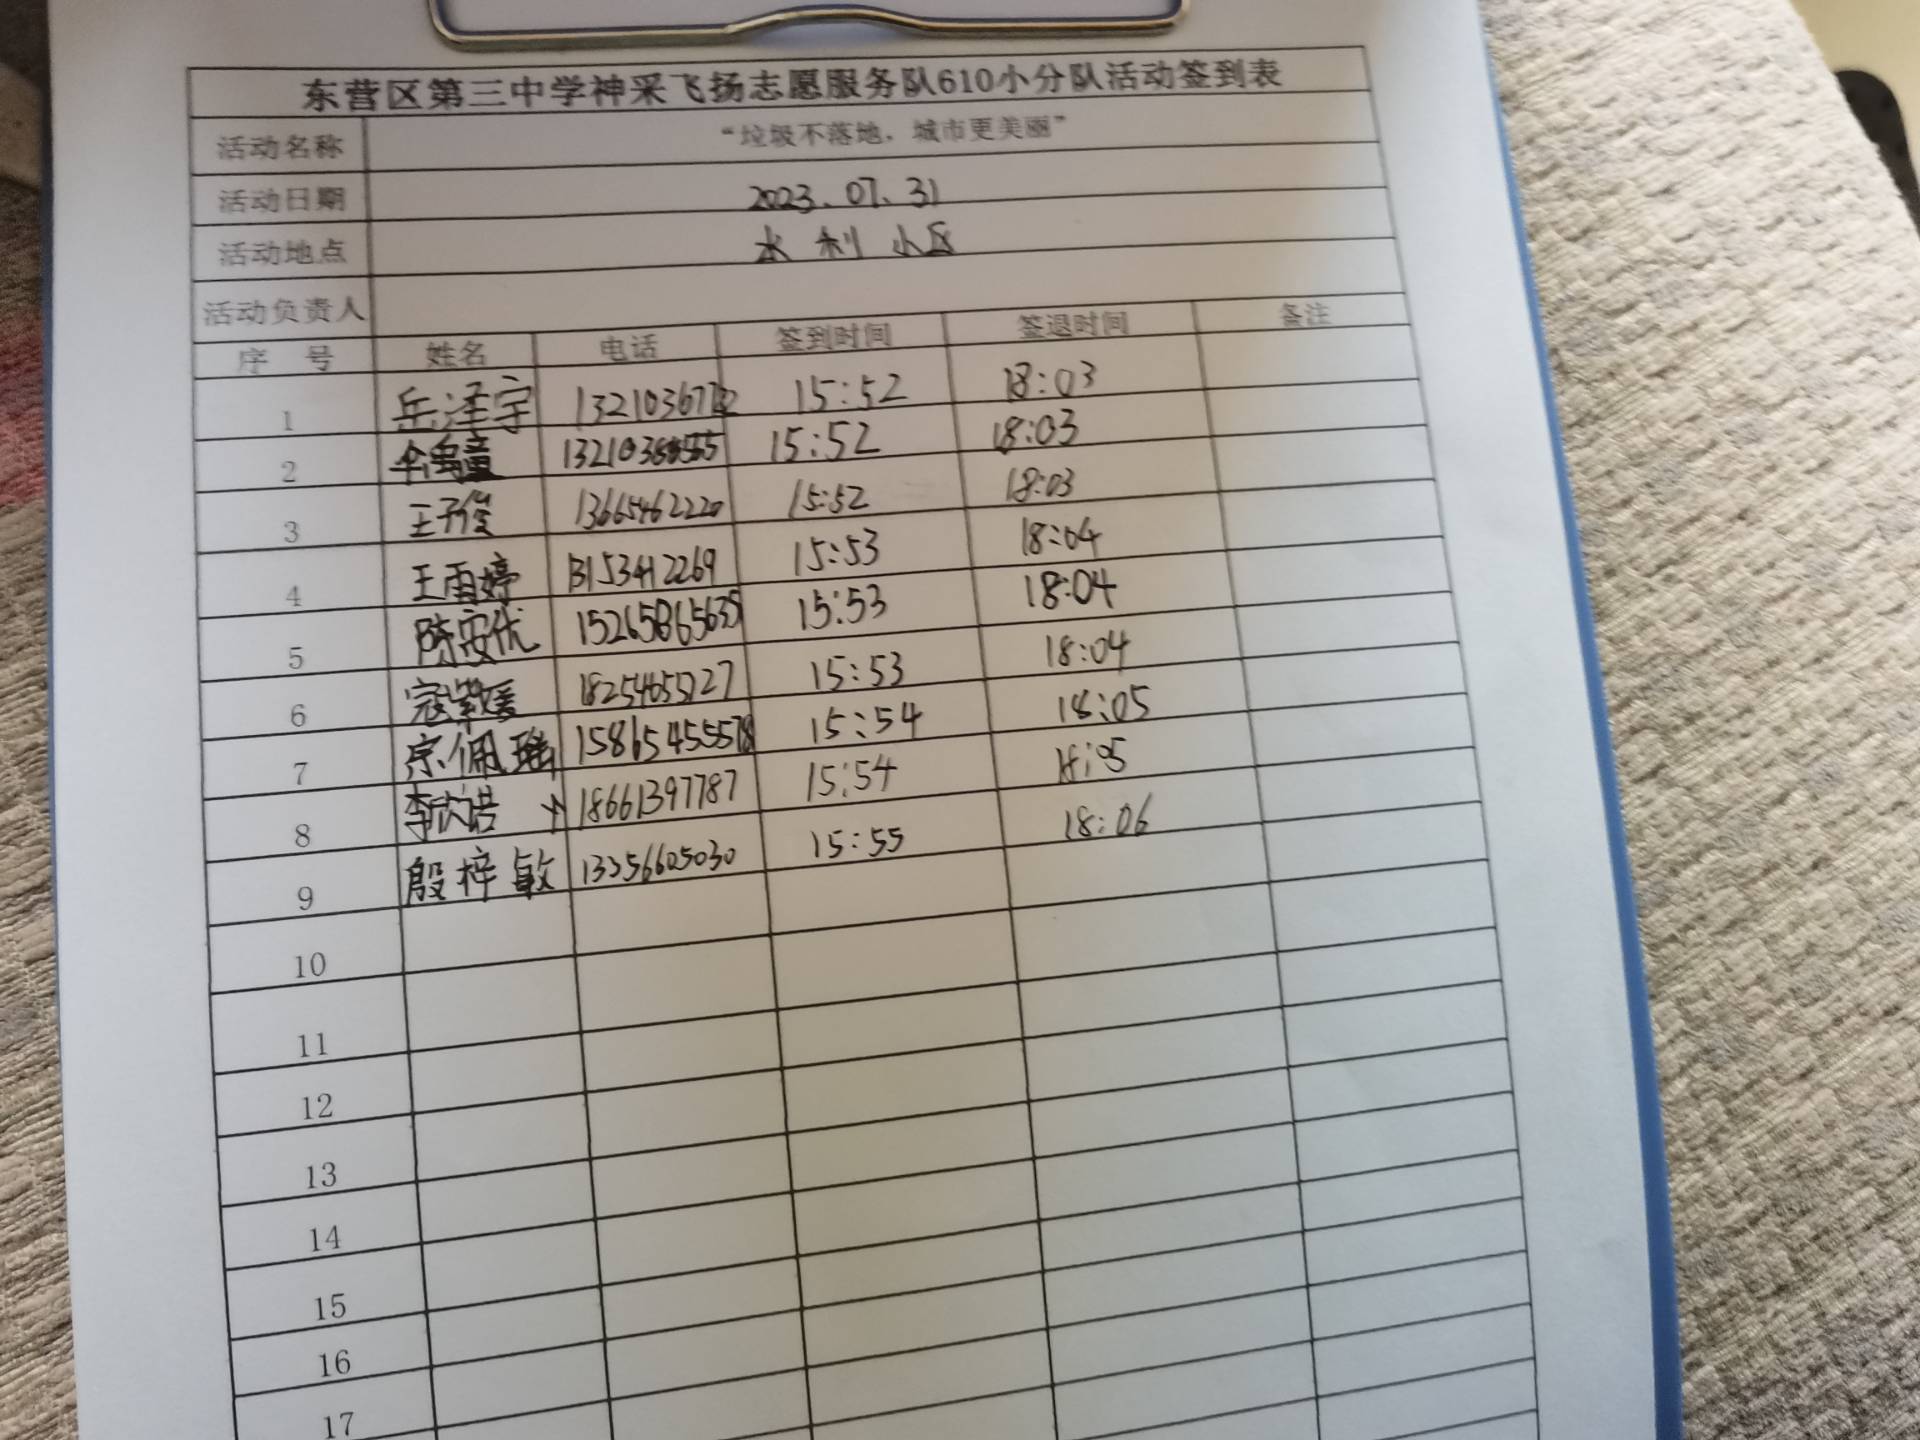 东营区第三中学神采飞扬志愿服务队610小分队活动签到表
活动名称 “垃圾不落地，城市更美丽”
活动日期 2023.07.31
活动地点 水利小区
活动负责人
序 号 姓名 电话 签到时间 签退时间 备注
1 岳泽宇 15:52 18:03
2 15:52 18:03
3 王子俊 13665462220 15:52 18:03
4 王雨婷 13153412269 15:53 18:04
5 陈安优 15265865635 15:53 18:04
6 寇紫媛 18254655727 15:53 18:04
7 宗佩瑶 15865455578 15:54 18:05
8 李欣诺 18661397787 15:54 18:05
9 殷梓敏 13356605030 15:55 18:06
10
11
12
13
14
15
16
17